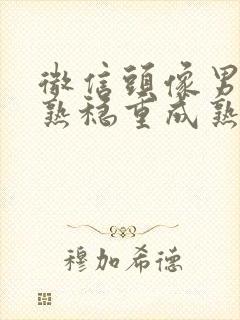 微信頭像男
熟穩重成熟
穆加希德